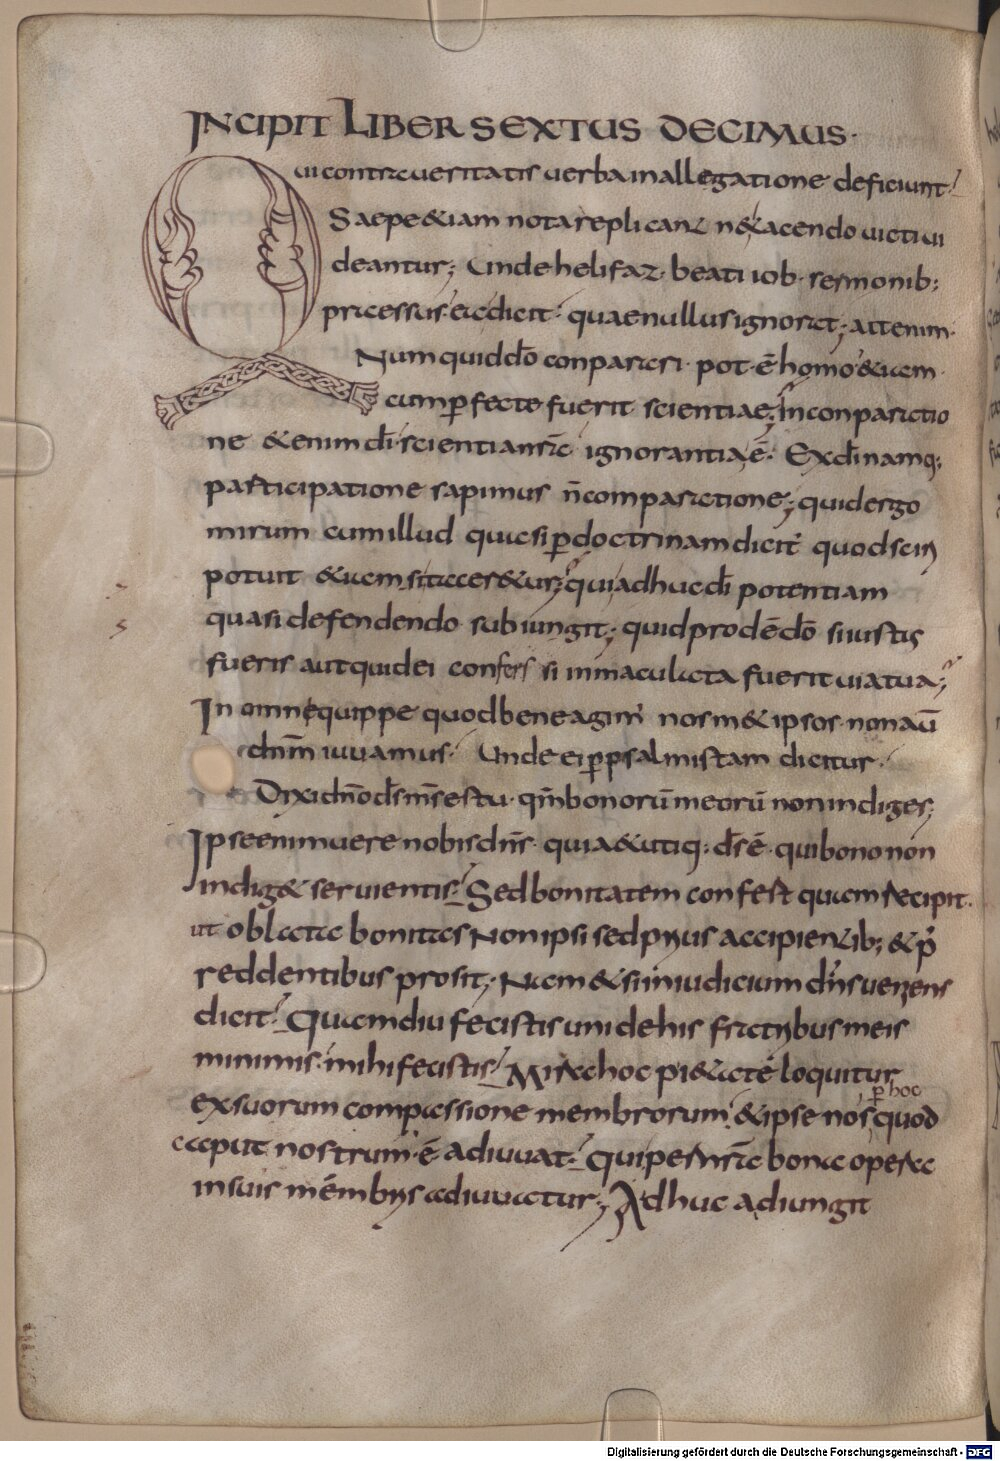 INCIPIT LIBER SEXTUS DECIMUS·
Qui contra ueritatis uerba in allegatione deficiunt
Saepe &iam nota replicant n& acendo uicti ui
deantur; Unde helifaz· beati iob· sermonib;
pressus· ait dicit· quae nullus ignorat; ait enim·
Numquid dō conparari· pot· ē homo &iam
cum pfectae fuerit scientiae; In conparatio
ne &enim dī· scientia nr̄a ignorantia ē· Ex dī namq;
participatione sapimus n̄ comparatione; quid ergo
mirum cum illud quasi p doctrinam dicit· quod sciri
potuit &iam si tacer&ur; qui adhuc dī potentiam
quasi defendendo subiungit; quid prodē dō si iustus
fueris aut quid ei confers si inmaculata fuerit uia tua;
In omne quippe quod bene agim' nosm&ipsos· non aū
dn̄m iuuamus· Unde & p psalmistam dicitur·
Dixi dn̄o ds̄ ms̄ es tu· qm̄ bonorū meorū non indiges;
Ipse enim uere nobis dn̄s· quia & utiq; ds̄ ē· qui bono non
indig& seruientis Sed bonitatem confert quam recipit·
ut oblata bonitas Non ipsi sed prius accipientib; & p'
reddentibus prosit; Nam & si in iudicium dn̄s ueniens
dicit· Quamdiu fecistis uni de his fratribus meis
minimis· mihi fecistis Mira hoc pi&ate loquitur
p hoc
ex suorum compassione membrorum· & ipse nos quod
caput nostrum ē adiuuat· qui per nr̄a bona opera
in suis mēmbris adiuuatur; Adhuc adiungit
Digitalisierung gefördert durch die Deutsche Forschungsgemeinschaft - DFG